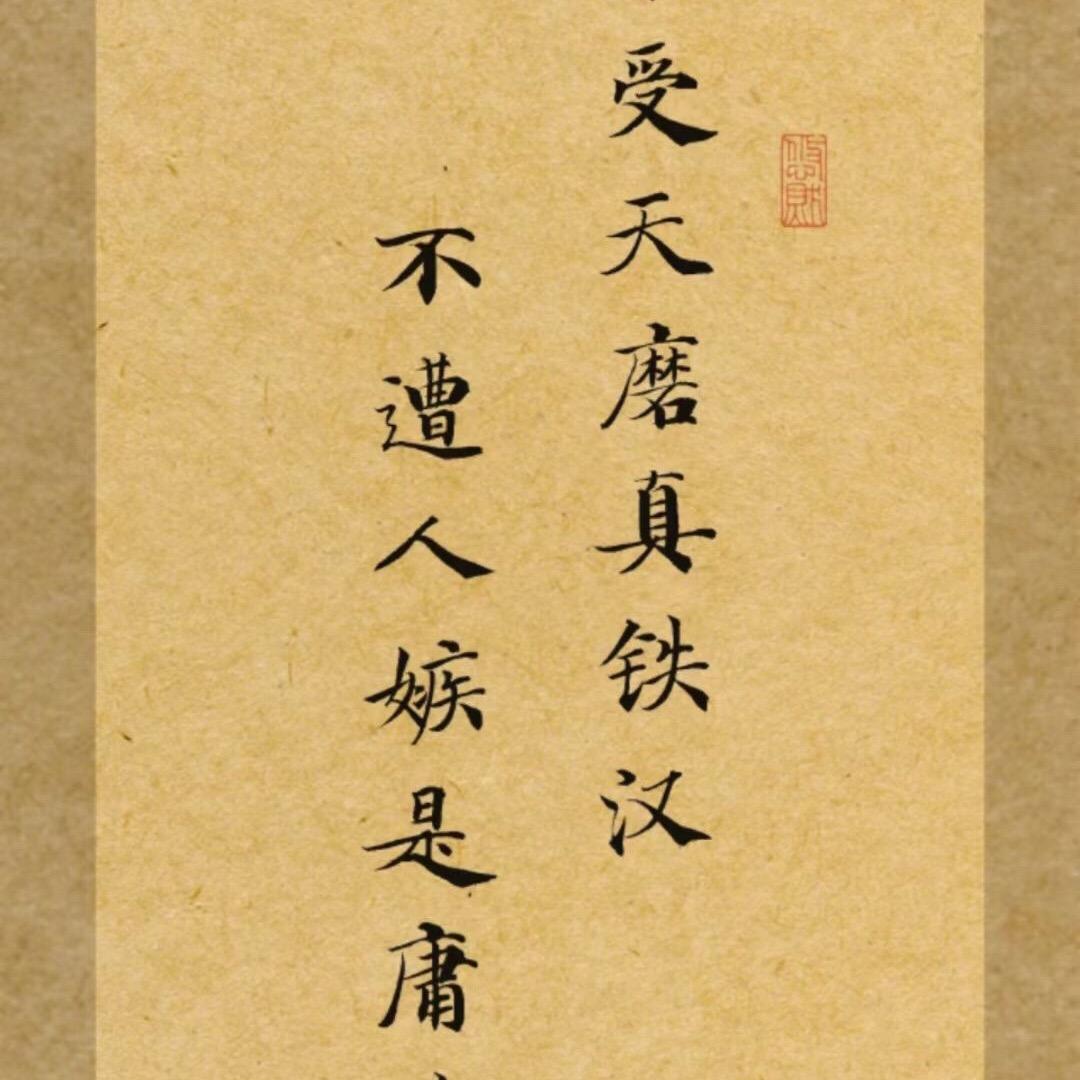 受天磨真铁汉
不遭人嫉是庸
悠然